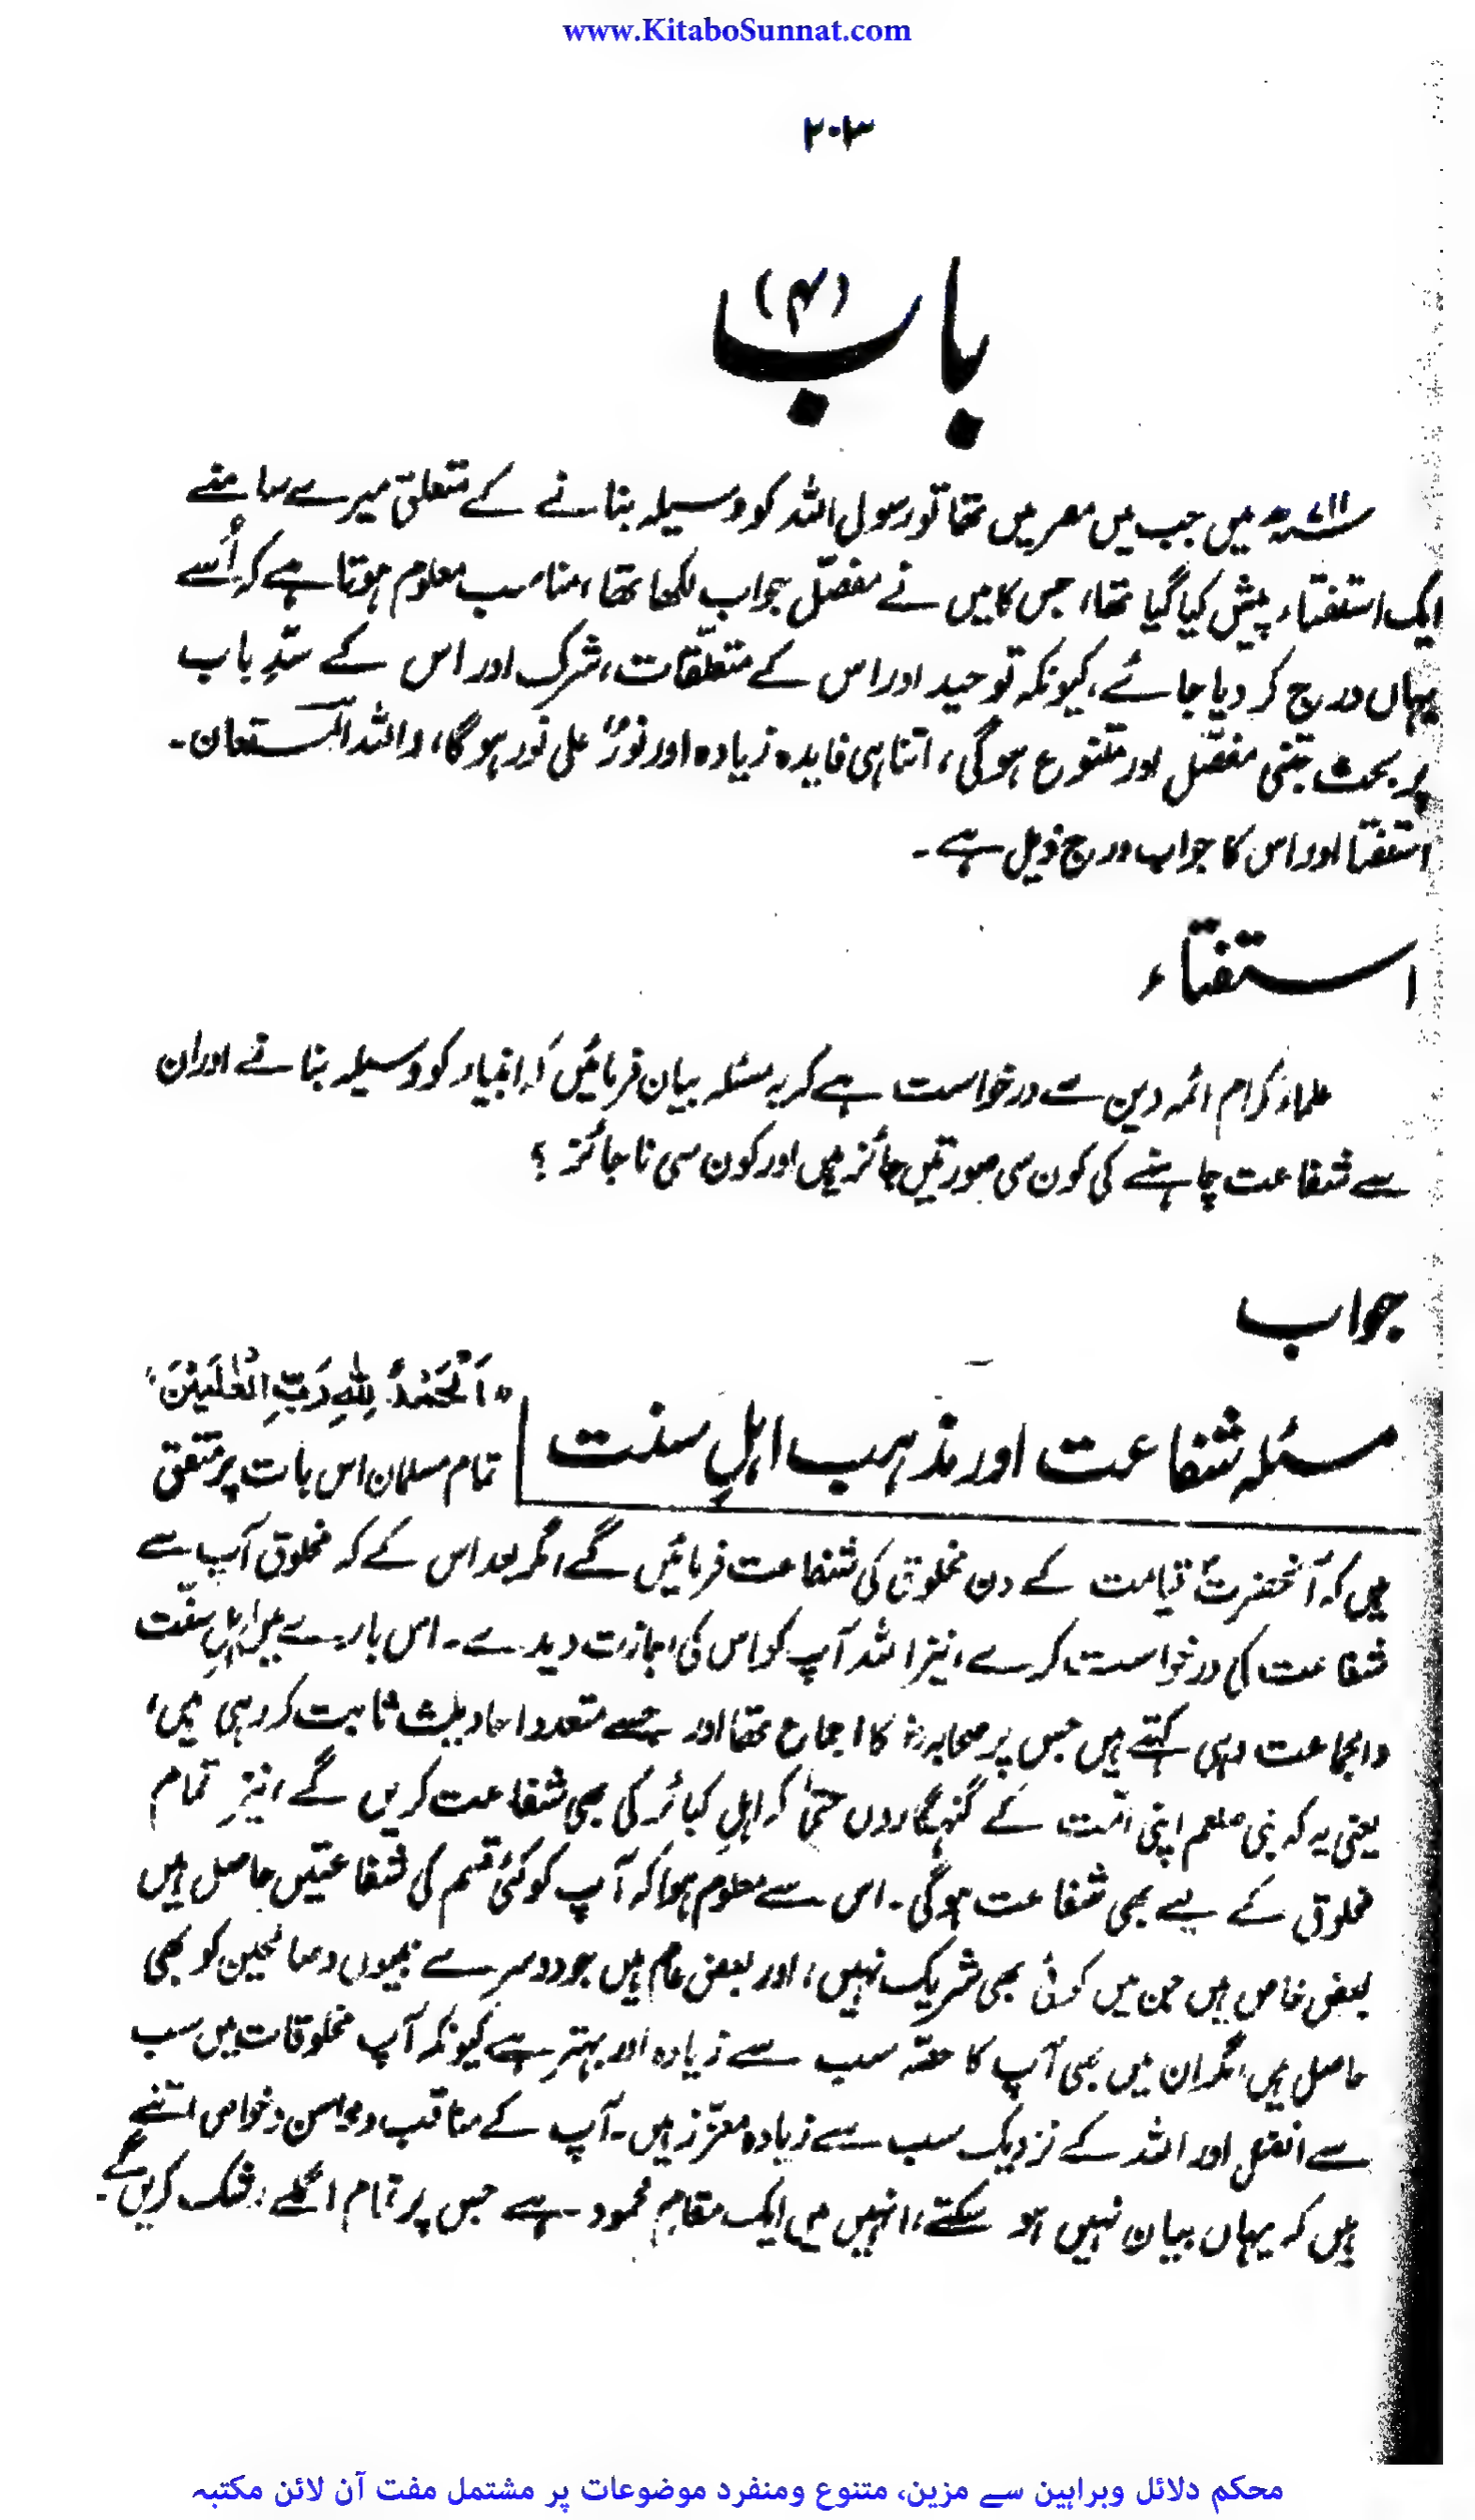 www.KitaboSunnat.com
۲۰۳
باب (۴)
۷۱۱ھ میں جب میں مصر میں تھا تو رسول اللہ کو وسیلہ بنانے کے متعلق میرے سامنے
ایک استفتاء پیش کیا گیا تھا، جس کا میں نے مفصّل جواب لکھا تھا، مناسب معلوم ہوتا ہے کہ اُسے
یہاں درج کر دیا جائے، کیونکہ توحید اور اس کے متعلّقات، شرک اور اس کے سدِّ باب
پر بحث جتنی مفصّل اور متنوع ہوگی، اتنا ہی فایدہ زیادہ اور نورٌ علی نور ہوگا، واللہ المستعان۔
استفتا اور اس کا جواب درج ذیل ہے۔
استفتاء
علماء کرام ائمہ دین سے درخواست ہے کہ یہ مسئلہ بیان فرمائیں کہ انبیاء کو وسیلہ بنانے اور ان
سے شفاعت چاہنے کی کون سی صورتیں جائز ہیں اور کون سی ناجائز ؟
جواب
مسئلہ شفاعت اور مذہب اہلِ سنت
"اَلْحَمْدُ لِلّٰہِ رَبِّ الْعٰلَمِیْنَ،
تمام مسلمان اس بات پر متفق
ہیں کہ آنحضرتؐ قیامت کے دن مخلوق کی شفاعت فرمائیں گے، مگر بعد اس کے کہ مخلوق آپ سے
شفاعت کی درخواست کرے، نیز اللہ آپ کو اس کی اجازت دیدے۔ اس بارے میں اہلِ سنّت
والجماعت وہی کہتے ہیں جس پر صحابہؓ کا اجماع تھا اور جسے متعدد احادیث ثابت کر رہی ہیں،
یعنی یہ کہ نبی صلعم اپنی امّت کے گنہگاروں حتیٰ کہ اہلِ کبائر کی بھی شفاعت کریں گے، نیز تمام
مخلوق کے لیے بھی شفاعت ہوگی۔ اس سے معلوم ہوا کہ آپ کو کئی قسم کی شفاعتیں حاصل ہیں
بعض خاص ہیں جن میں کوئی بھی شریک نہیں، اور بعض عام ہیں جو دوسرے نبیوں و صالحین کو بھی
حاصل ہیں، مگر ان میں بھی آپ کا حصّہ سب سے زیادہ اور بہتر ہے کیونکہ آپ مخلوقات میں سب
سے افضل اور اللہ کے نزدیک سب سے زیادہ معزّز ہیں۔ آپ کے مناقب و محاسن و خواص اتنے
ہیں کہ یہاں بیان نہیں ہو سکتے، انہیں میں ایک مقامِ محمود ہے جس پر تمام اگلے رشک کریں گے۔
محکم دلائل وبراہین سے مزین، متنوع ومنفرد موضوعات پر مشتمل مفت آن لائن مکتبہ